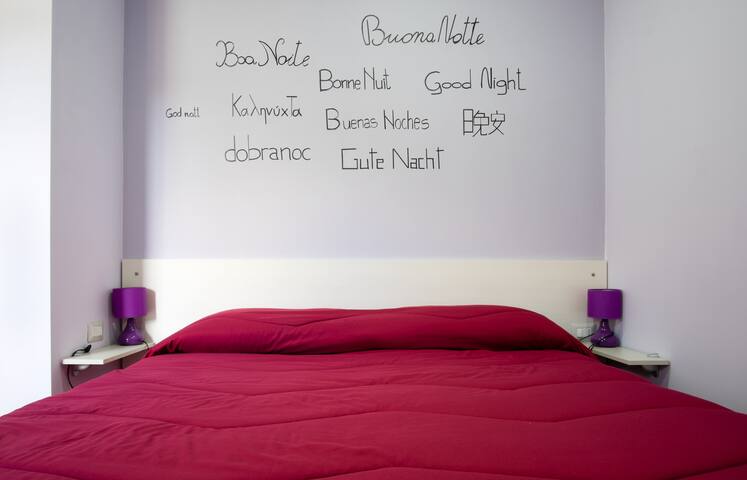 Buona Notte
Boa Noite
Bonne Nuit
Good Night
God natt
Καληνύχτα
Buenas Noches
晚安
dobranoc
Gute Nacht